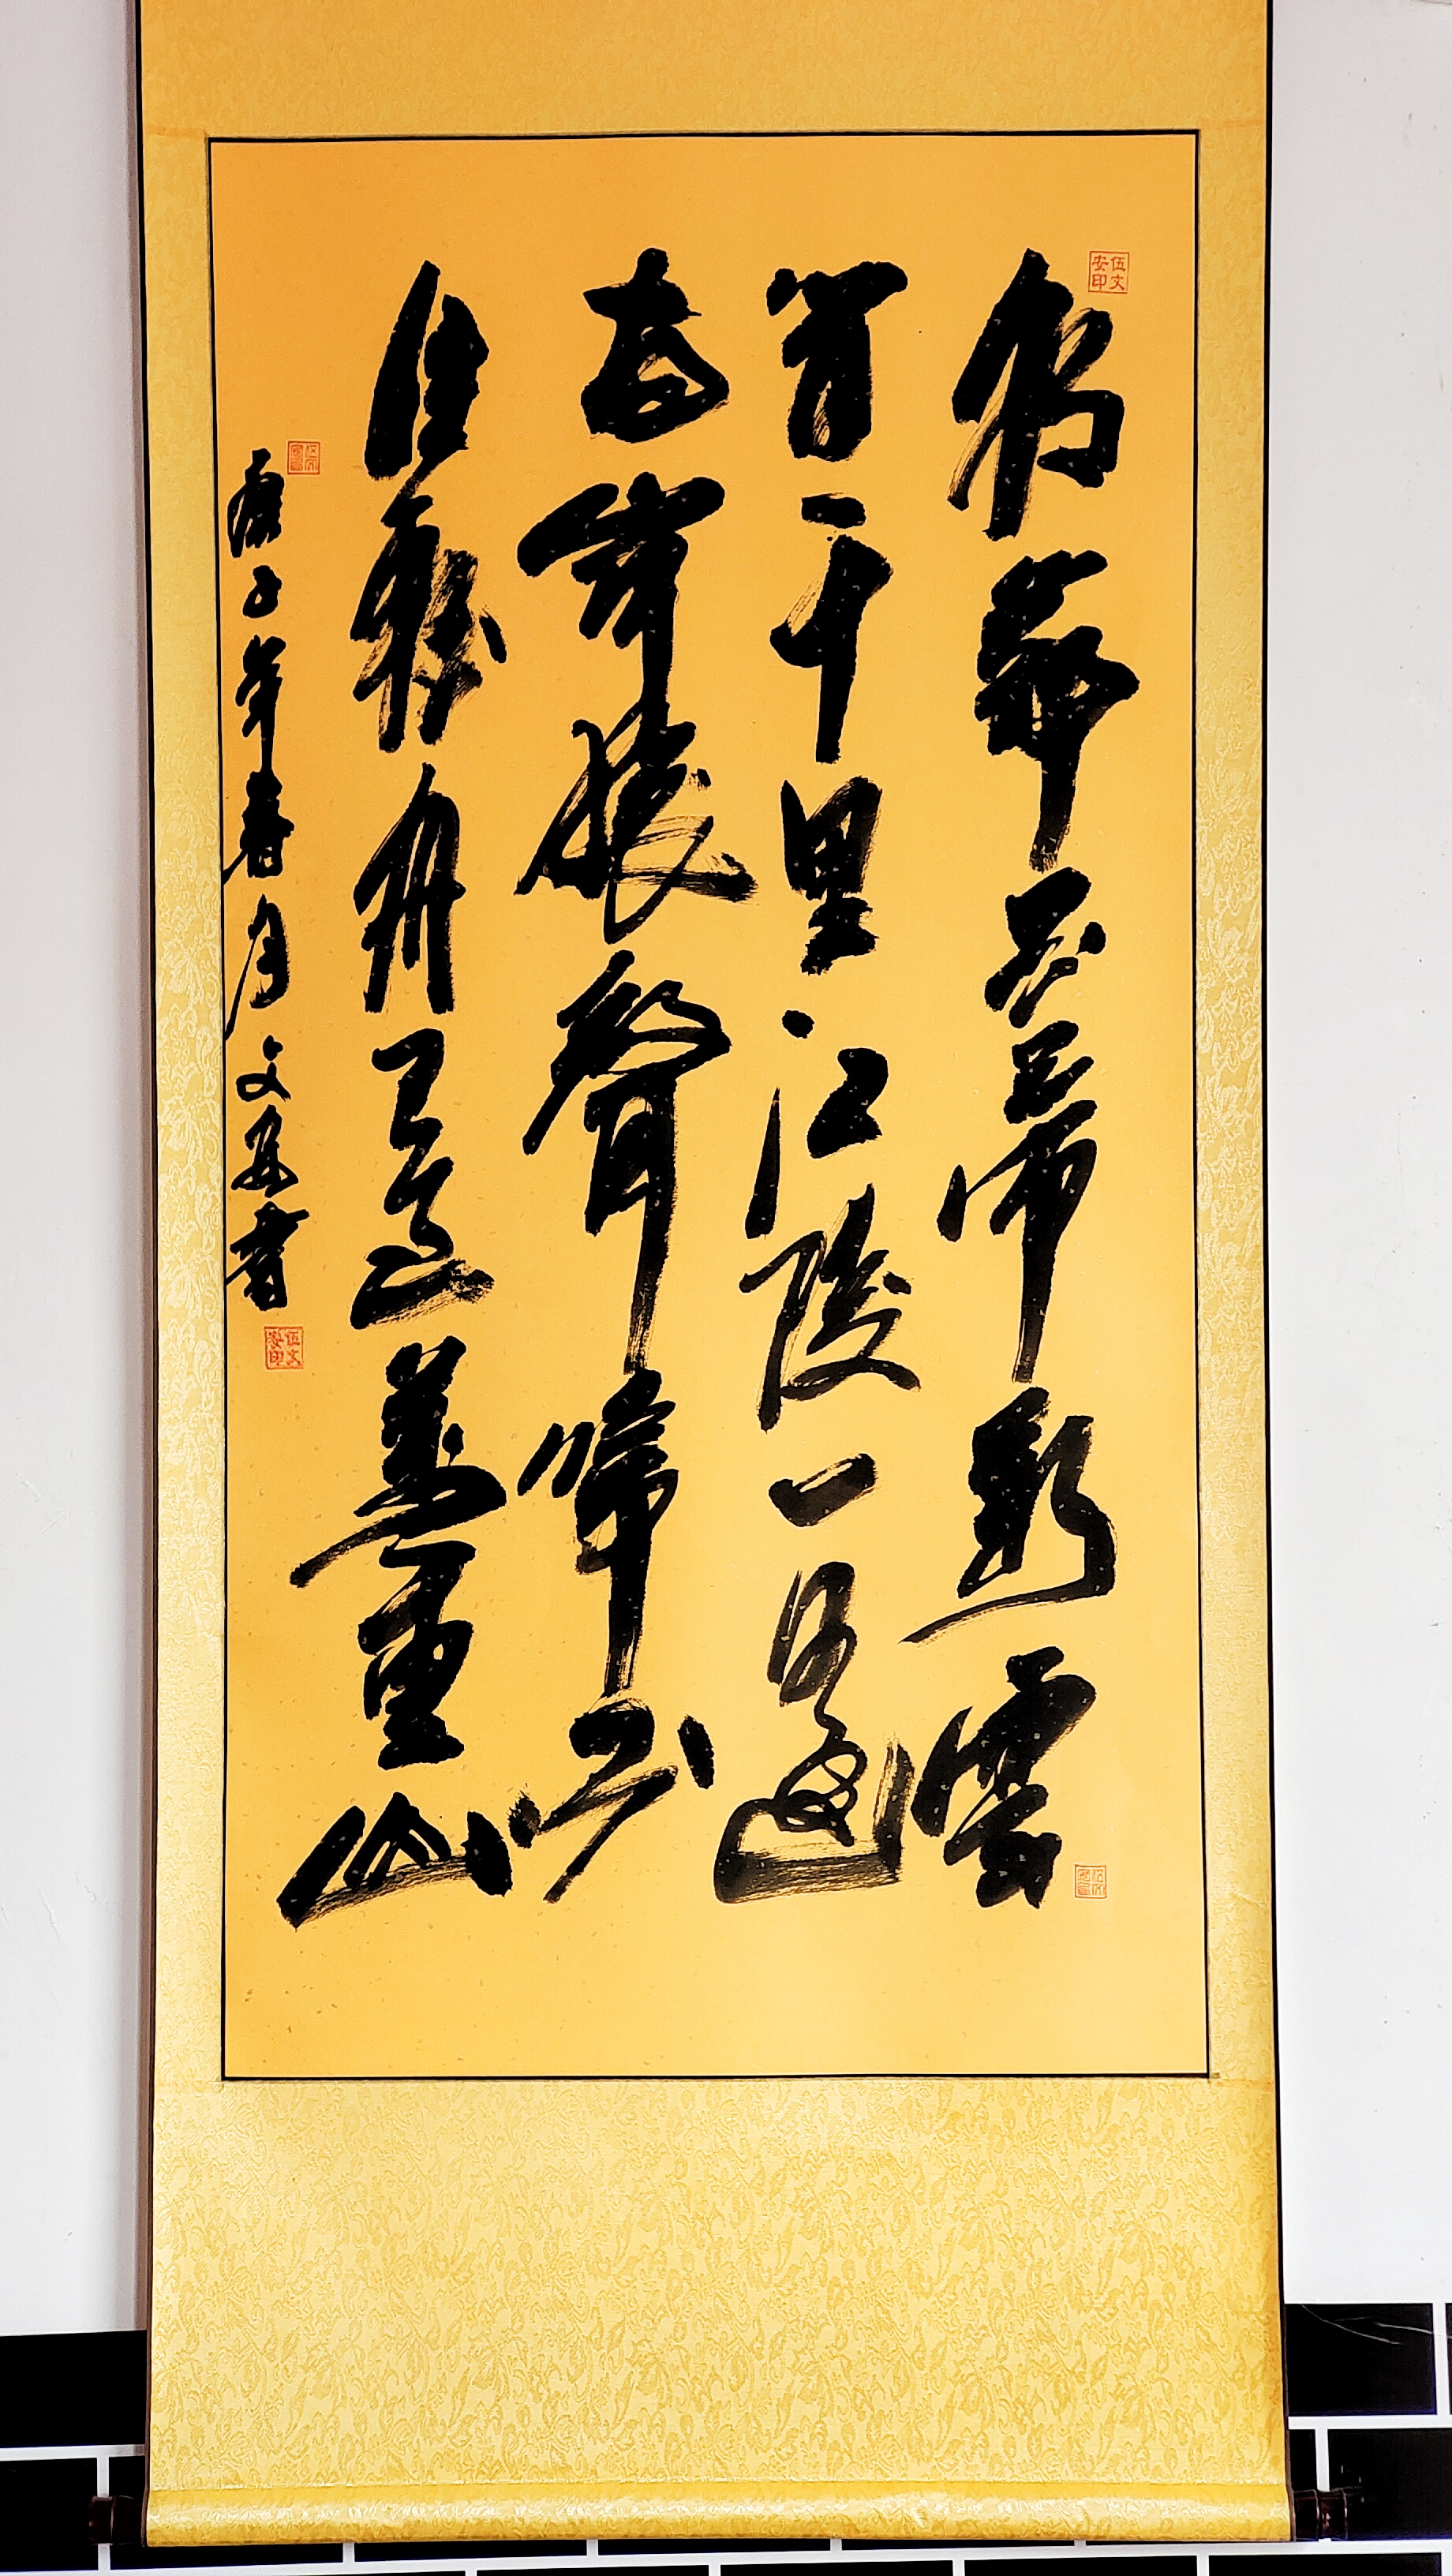 伍文安印
朝辭白帝彩雲
間千里江陵一日還
兩岸猿聲啼不
住輕舟已過萬重山
庚子年春月文安書
伍文安印